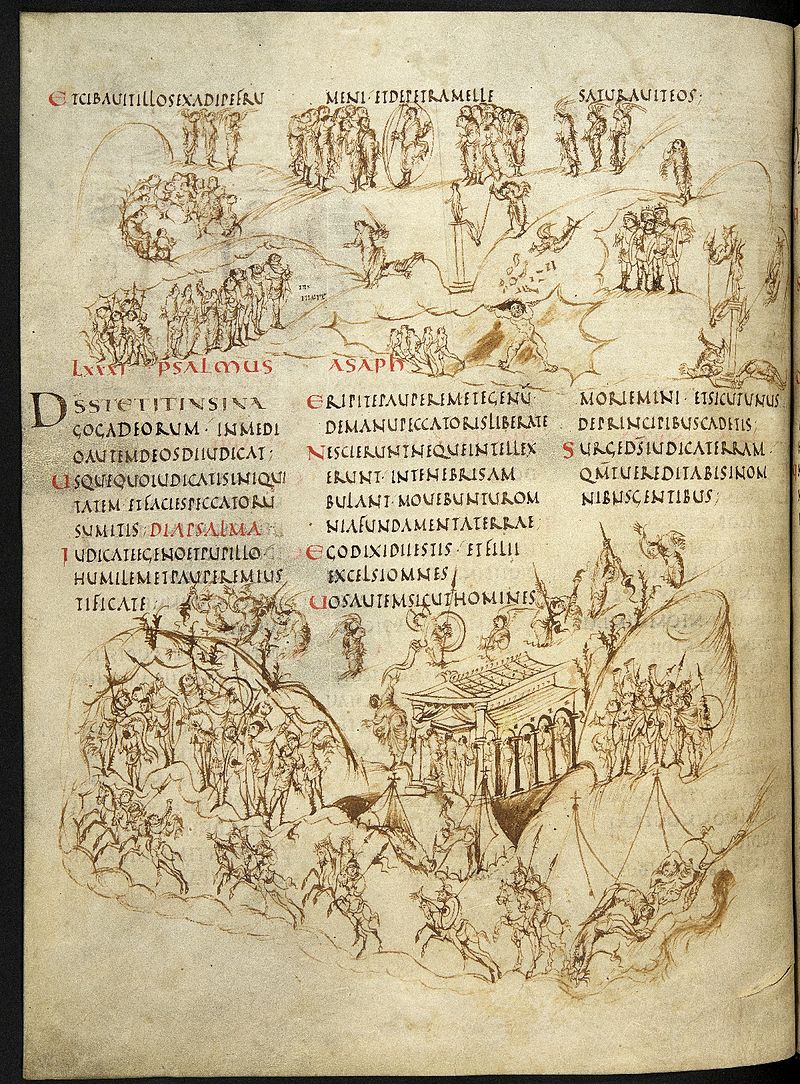 ETCIBAUITILLOSEXADIPEFRU MENI· ETDEPETRAMELLE SATURAUITEOS·
LXXXI PSALMUS ASAPH
DSSTETITINSINA
GOGADEORUM· INMEDI
OAUTEMDEOSDIIUDICAT;
USQUEQUOIUDICATISINIQUI
TATEM· ETFACIESPECCATORU
SUMITIS; DIAPSALMA
IUDICATEEGENOETPUPILLO·
HUMILEMETPAUPEREMIUS
TIFICATE;
ERIPITEPAUPEREMETEGENU·
DEMANUPECCATORISLIBERATE
NESCIERUNTNEQUEINTELLEX
ERUNT· INTENEBRISAM
BULANT· MOUEBUNTUROM
NIAFUNDAMENTATERRAE;
EGODIXIDIIESTIS· ETFILII
EXCELSIOMNES;
UOSAUTEMSICUTHOMINES
MORIEMINI· ETSICUTUNUS
DEPRINCIPIBUSCADETIS;
SURGEDS̄IUDICATERRAM·
QM̄TUEREDITABISINOM
NIBUSGENTIBUS;